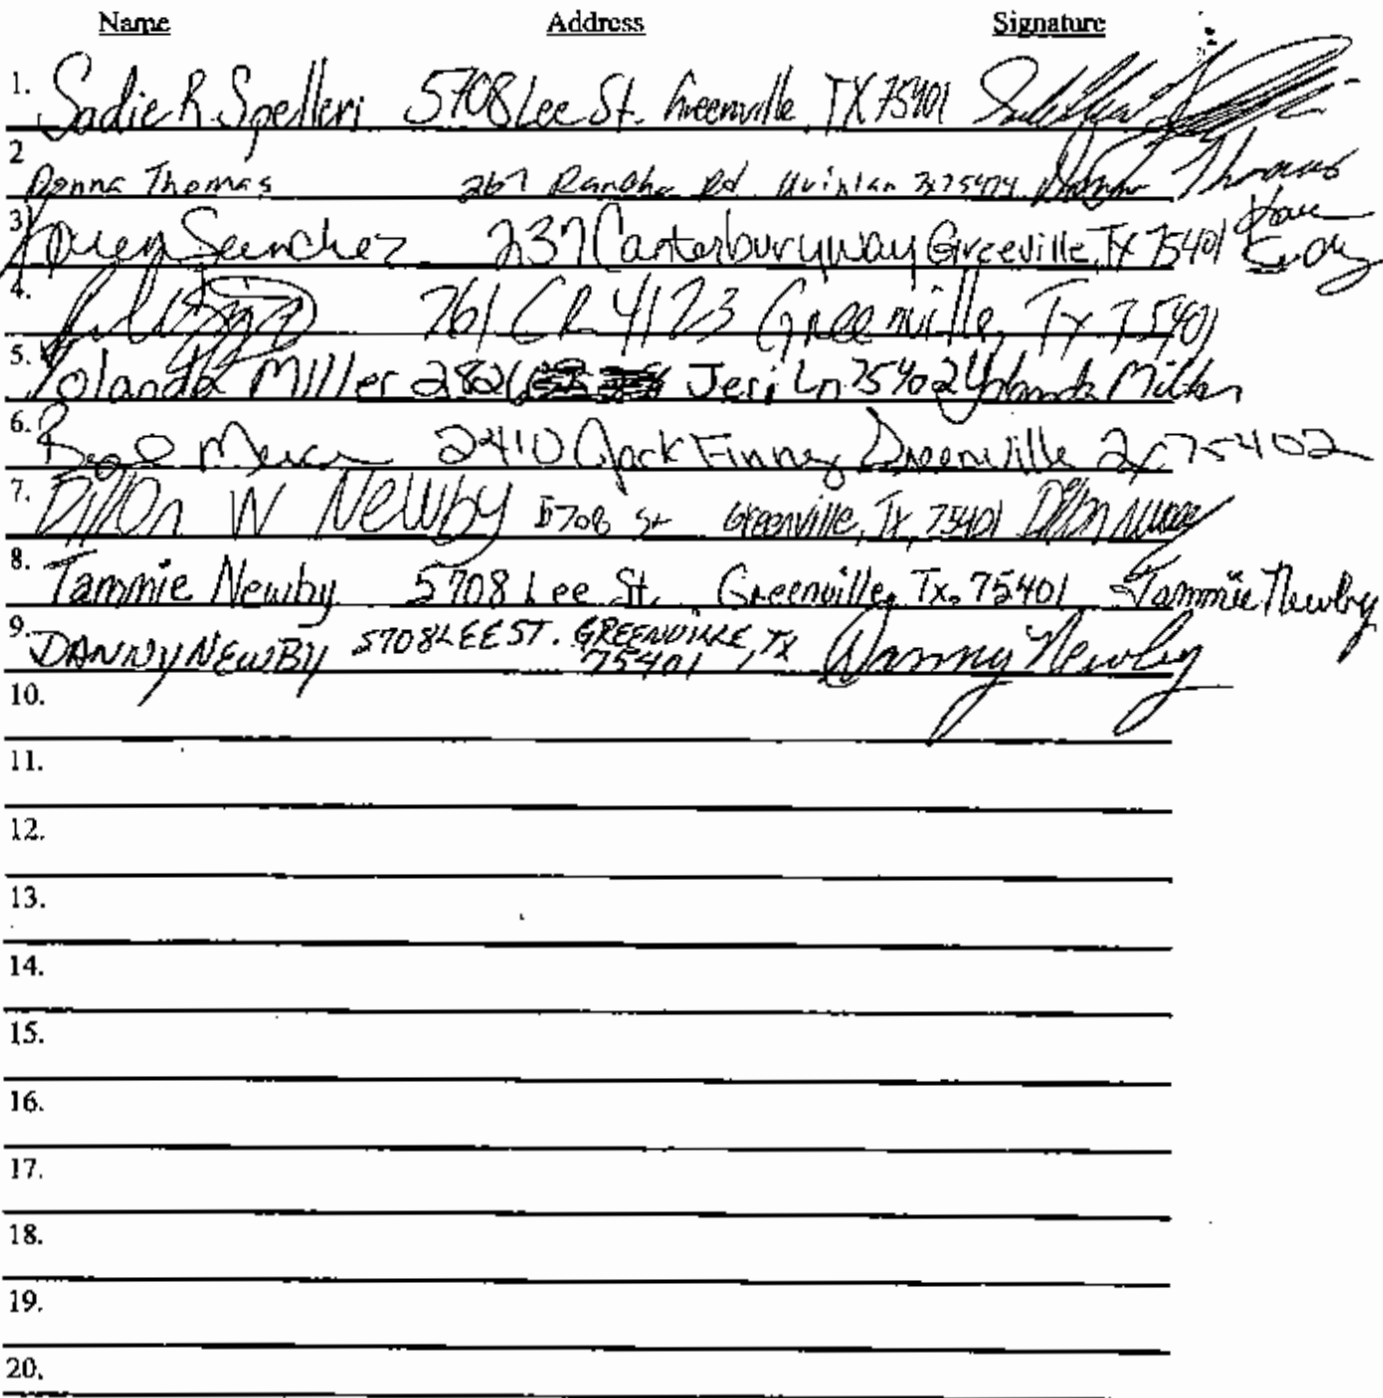 Name Address Signature
1. Sadie R Spelleri 5708 Lee St. Greenville, TX 75401
2 Donna Thomas 267 Rd. Quinlan Tx 75474 Donna Thomas
3. Karen Sanchez 237 Canterbury way Greeville, Tx 75401
4. 761 CR 4123 Greenville, Tx 75401
5. Yolanda Miller 2826 Jeri Ln 75402 Yolanda Miller
6. 2410 Jack Finney Greenville Tx 75402
7. Dillon W Newby 5708 St Greenville, Tx, 75401 Dillon Newby
8. Tammie Newby 5708 Lee St. Greenville, Tx. 75401 Tammie Newby
9. DANNY NEWBY 5708 LEE ST. GREENVILLE, TX 75401 Danny Newby
10.
11.
12.
13.
14.
15.
16.
17.
18.
19.
20.